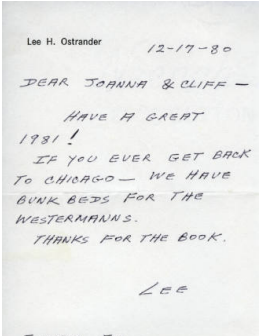 Lee H. Ostrander
12-17-80
DEAR JOANNA & CLIFF —
HAVE A GREAT
1981!
IF YOU EVER GET BACK
TO CHICAGO — WE HAVE
BUNK BEDS FOR THE
WESTERMANNS.
THANKS FOR THE BOOK.
LEE